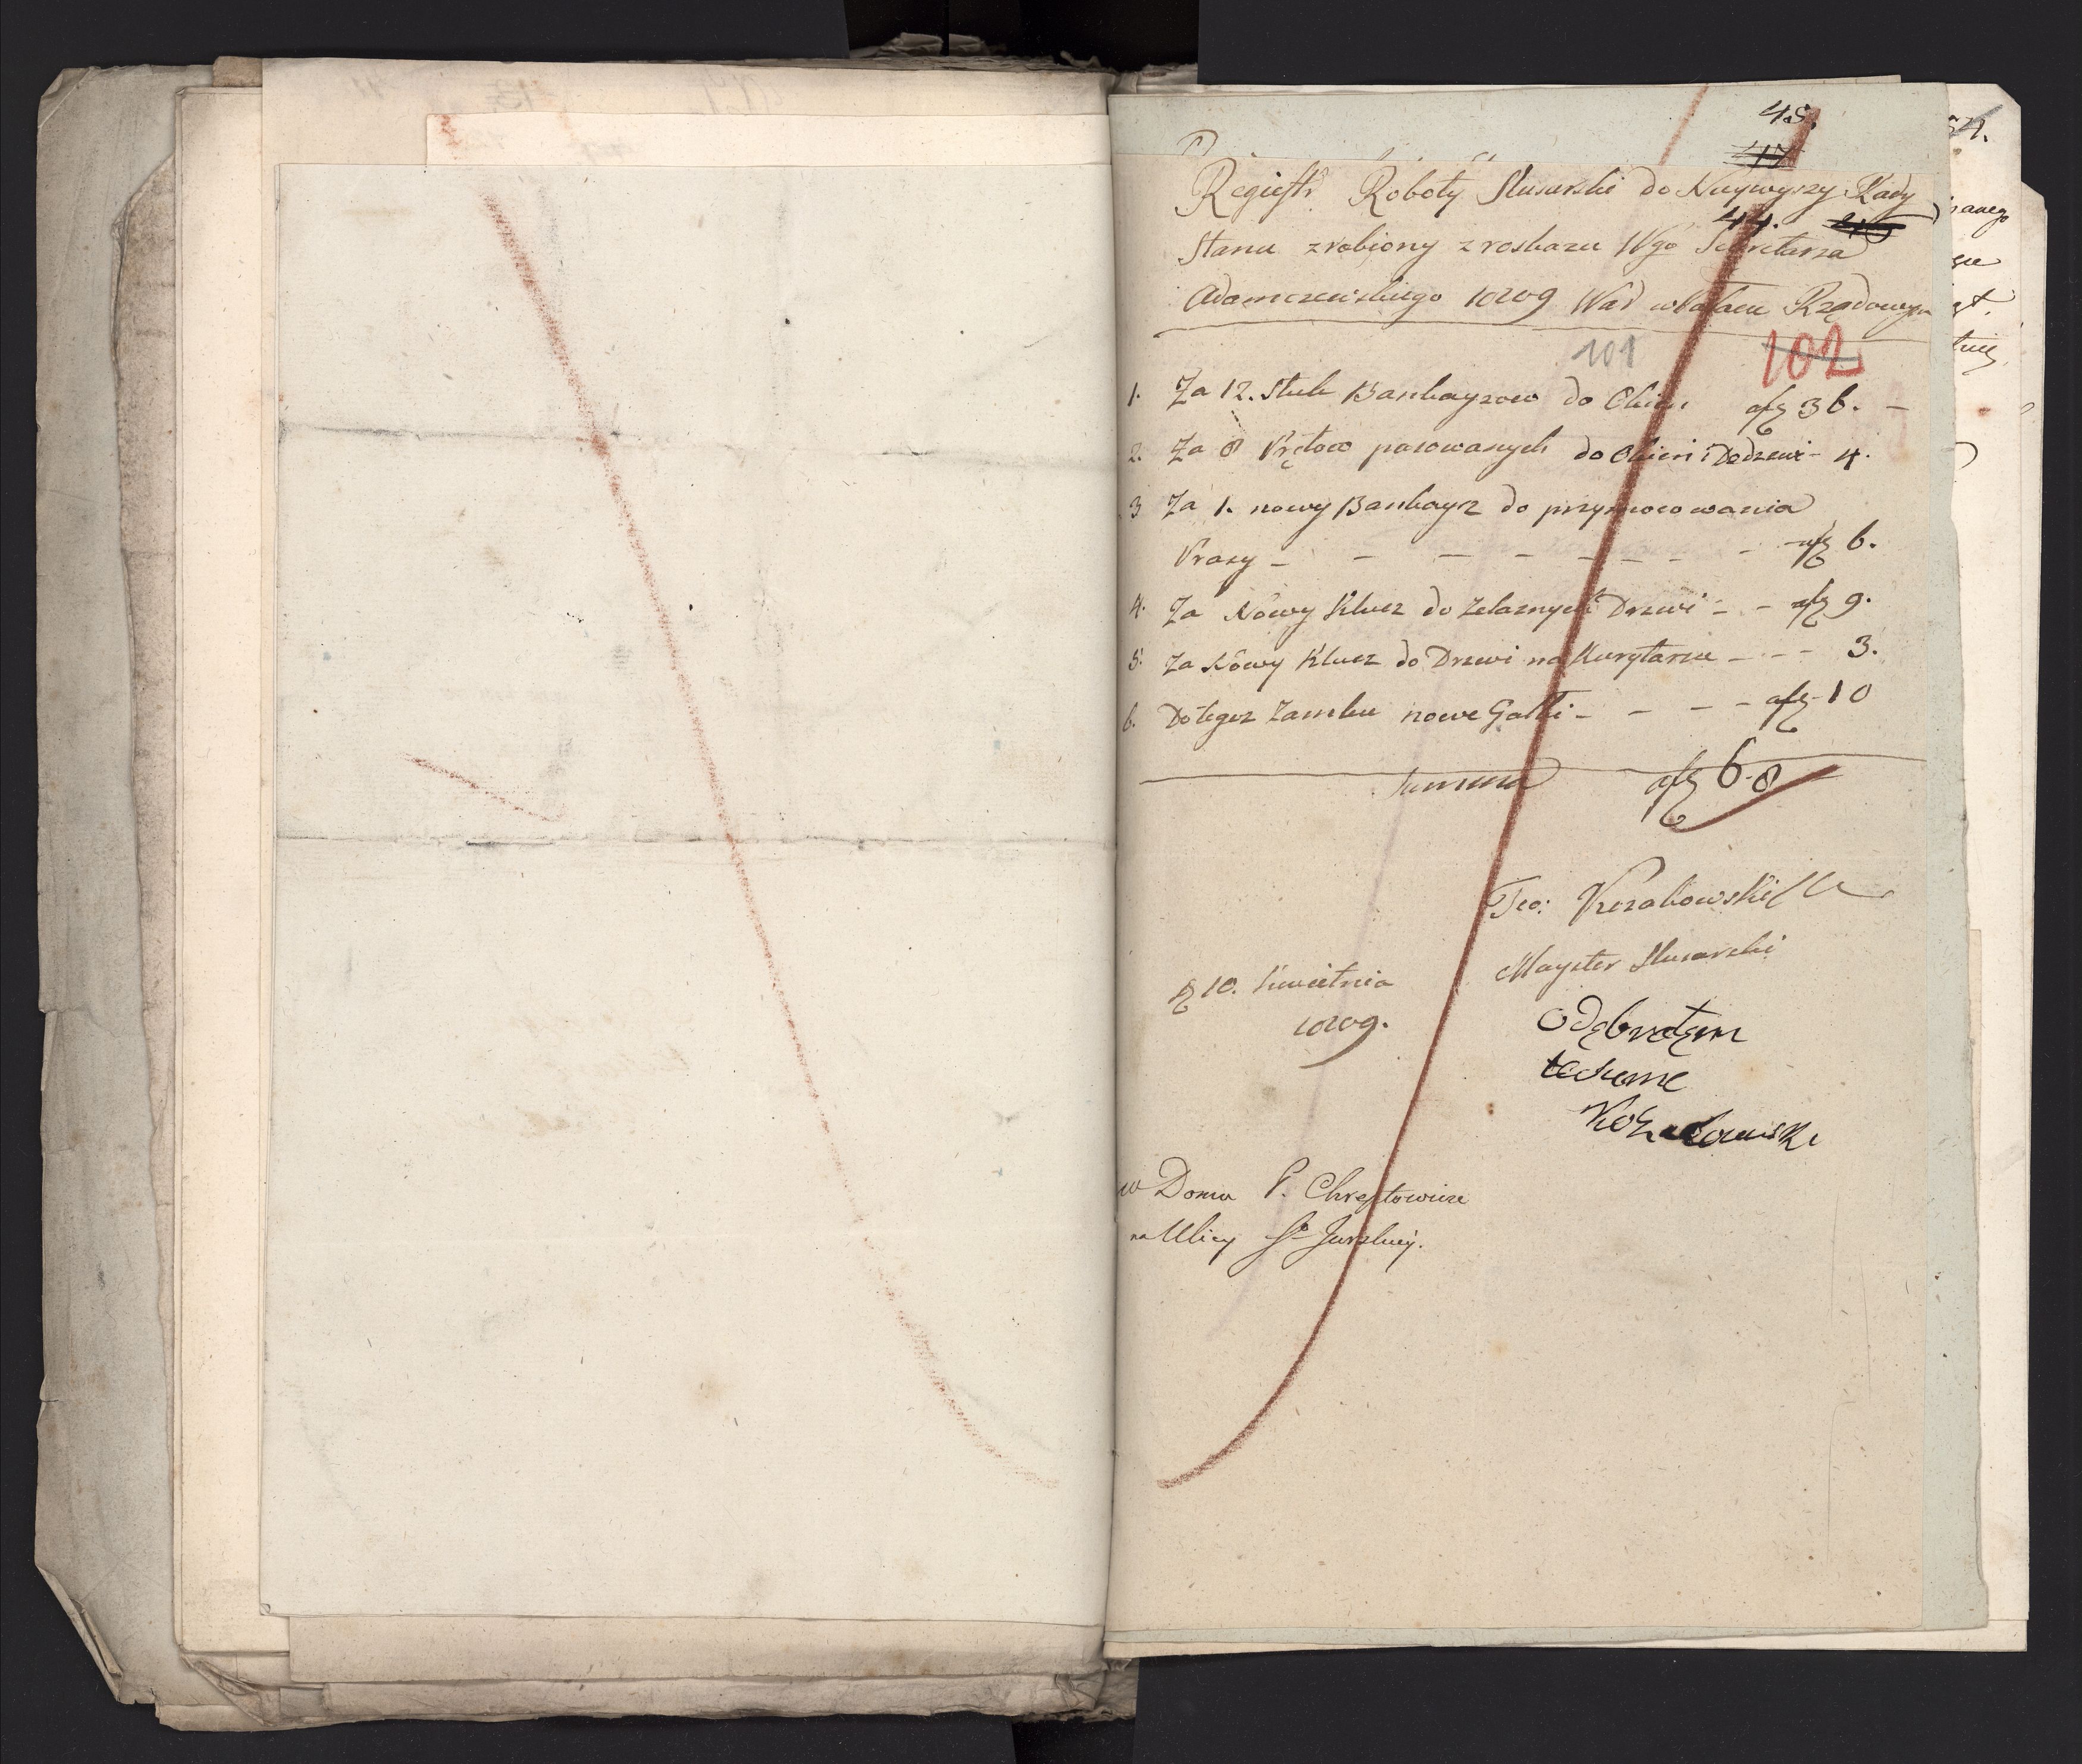 45.
47
Regiestr Roboty Slusarski do Naywyszy Rady
44. 46
Stanu zrobiony z roskazu Wgo Sekretarza
Adamczewskiego 1809 War w Pałacu Rządowym
101 102
1. Za 12. Stuk Bankayzow do Okien zł 36. –
2. Za 8 Prętow pasowanych do Okien i Do drzwi – 4.
3 Za 1. nowy Bankayz do przymocowania
Prasy – – – – – – – – zł 6.
4. Za Nowy Klucz do Zelaznych Drzwi – – zł 9.
5. Za Nowy Klucz do Drzwi na Kurytarzu – – – 3.
6. Do tegoz Zamku nowe Gałki – – – – zł 10
Summa zł 68
Teo:
Mayster Slusarski
D 10. Kwietnia
1809.
Odębrałęm
w Domu P. Chreptowicza
na Ulicy
54.